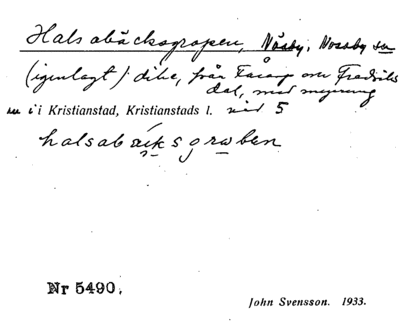 Halsabäcksgrapen, Näsby, Nosaby sn
(igenlagt) dike, från Fårap om Fredriks
dal, med mynning
nu i Kristianstad, Kristianstads l. vid 5
halsabæksgraben
Nr 5490.
John Svensson. 1933.